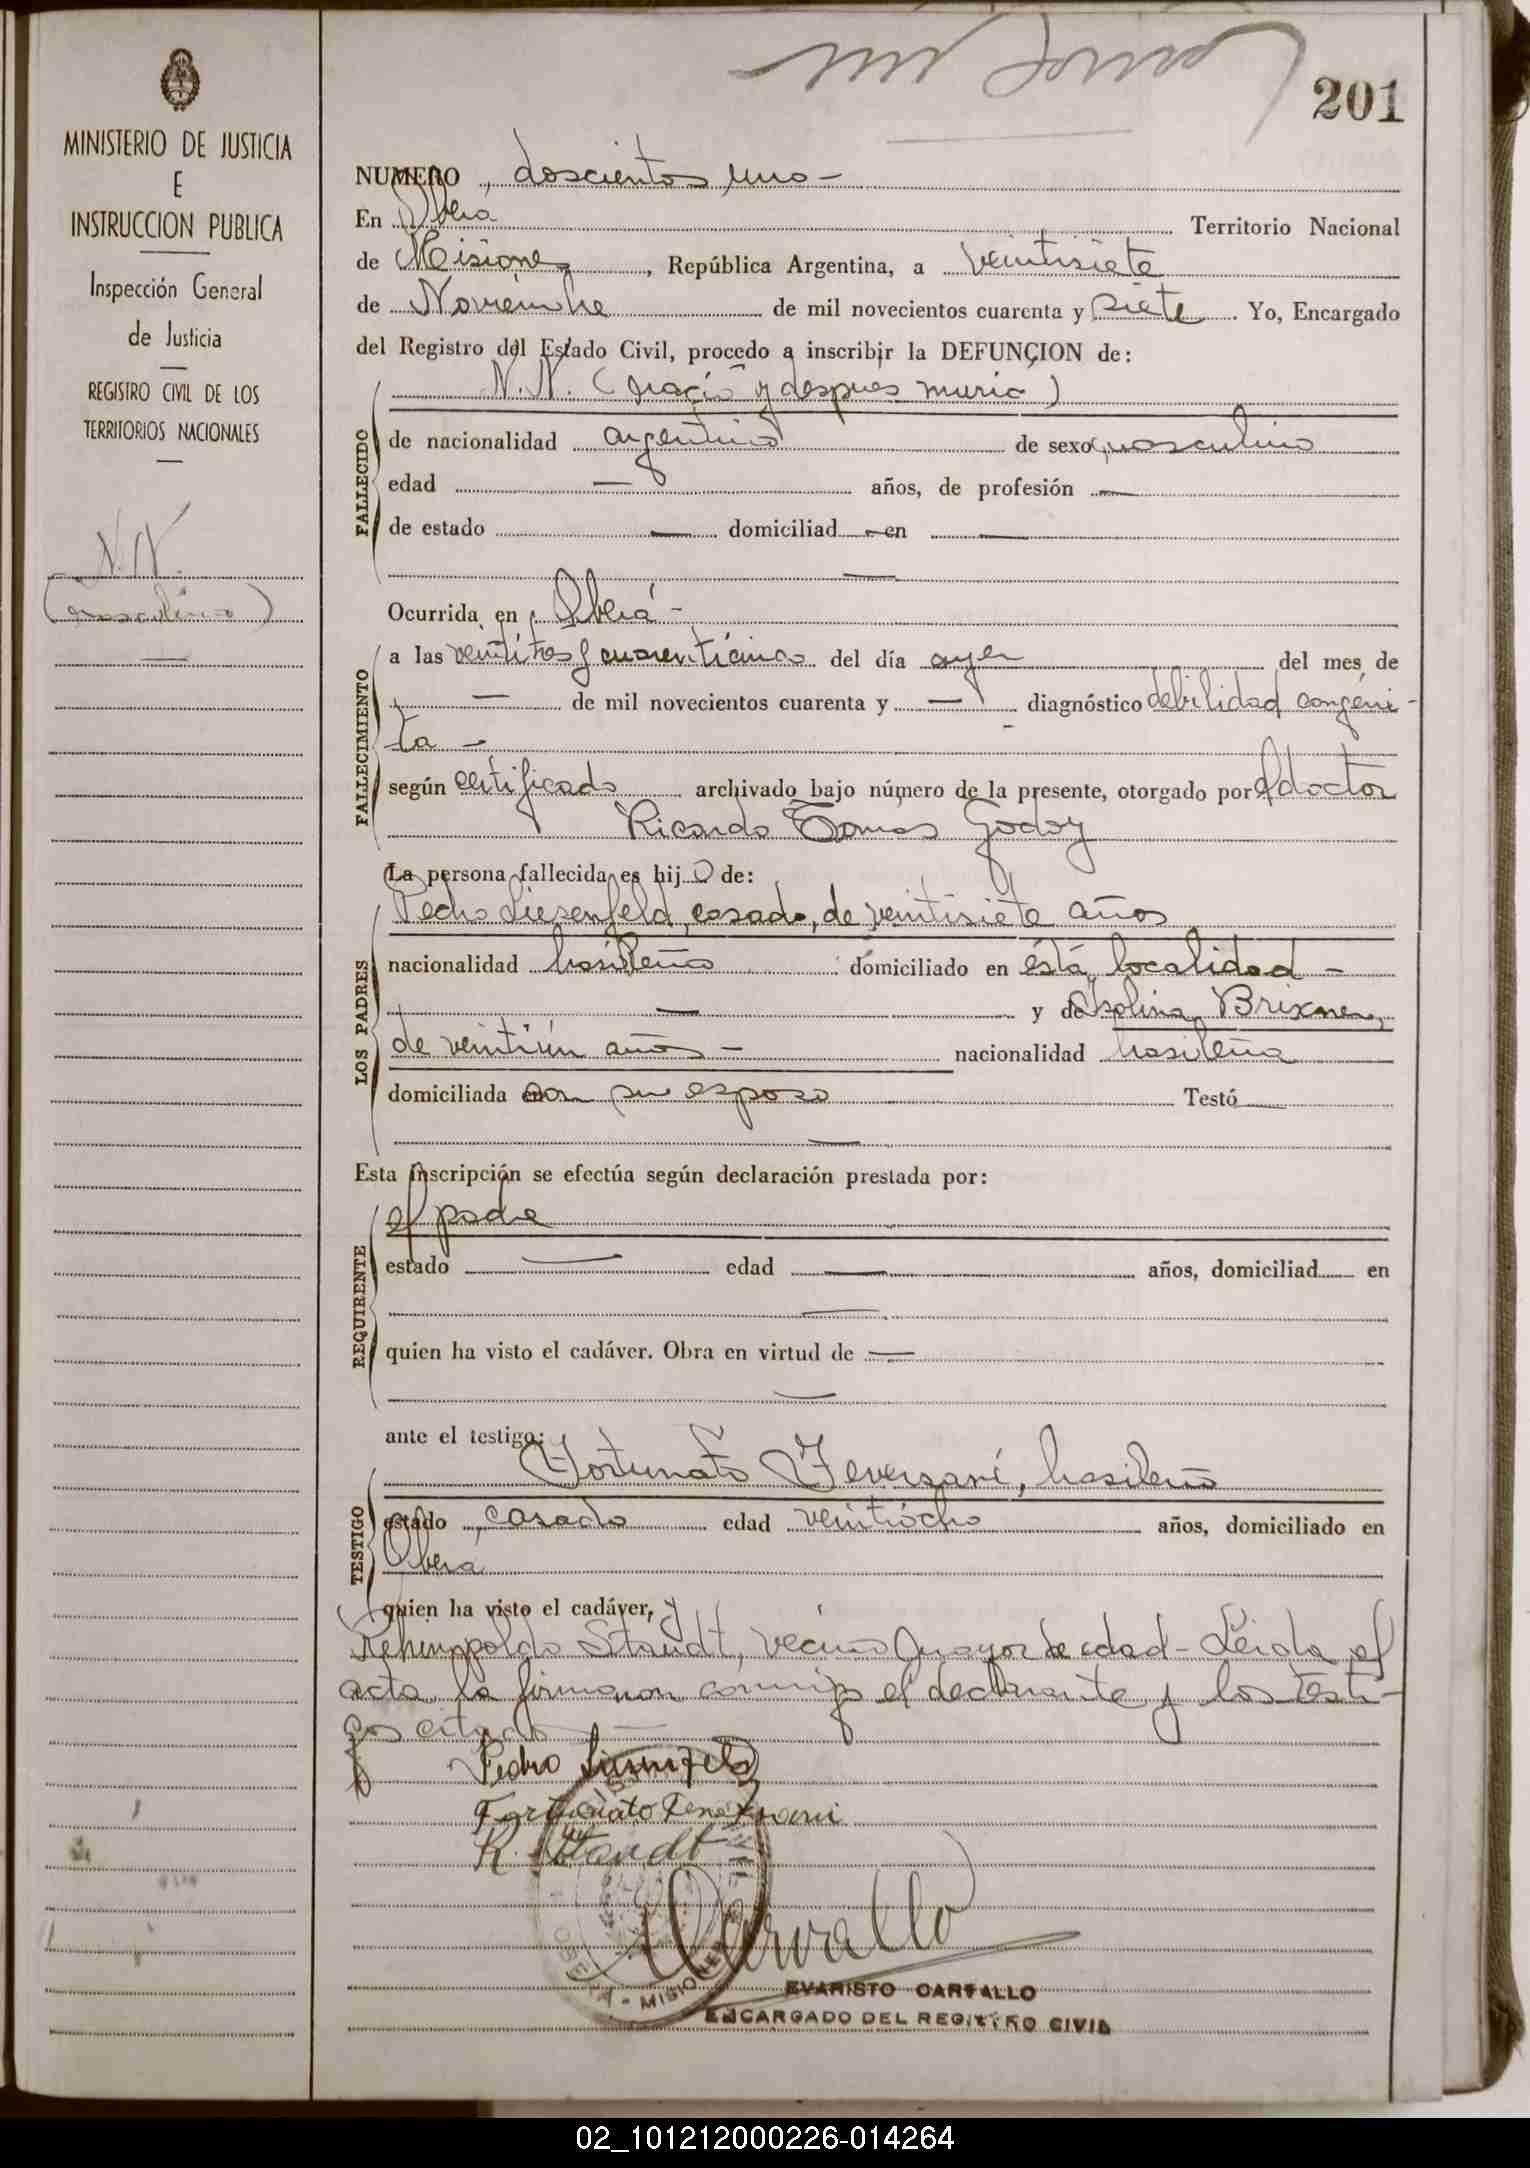 201
MINISTERIO DE JUSTICIA
E
INSTRUCCION PUBLICA
Inspección General
de Justicia
REGISTRO CIVIL DE LOS
TERRITORIOS NACIONALES
N.N.
(masculino)
NUMERO doscientos uno-
En Oberá Territorio Nacional
de Misiones, República Argentina, a veintisiete
de Noviembre de mil novecientos cuarenta y siete. Yo, Encargado
del Registro del Estado Civil, procedo a inscribir la DEFUNCION de:
N.N. (nació y despues murió)
FALLECIDO
de nacionalidad argentino de sexo masculino
edad — años, de profesión —
de estado — domiciliad — en —
—
Ocurrida en Oberá -
FALLECIMIENTO
a las veintitres y cuarenticinco del día ayer del mes de
— de mil novecientos cuarenta y — diagnóstico debilidad congéni-
ta -
según certificado archivado bajo número de la presente, otorgado por el doctor
Ricardo Tomas Godoy
La persona fallecida es hijo de:
LOS PADRES
Pedro Liesenfeld, casado, de veintisiete años
nacionalidad brasileño domiciliado en ésta localidad -
— y de Brixner,
de veintiún años - nacionalidad brasileña
domiciliada con su esposo Testó —
—
Esta inscripción se efectúa según declaración prestada por:
REQUIRENTE
el padre
estado — edad — años, domiciliad — en
—
quien ha visto el cadáver. Obra en virtud de —
—
ante el testigo:
TESTIGO
Fortunato, brasileño
estado casado edad veintiocho años, domiciliado en
Oberá
quien ha visto el cadáver, y
Staudt, vecino mayor de edad - Leida el
acta la firmaron conmigo el declarante y los testi-
gos citados
Pedro
Fortunato
R. Staudt
OBERA - MISIONES
Carvallo
EVARISTO CARVALLO
ENCARGADO DEL REGISTRO CIVIL
02_101212000226-014264